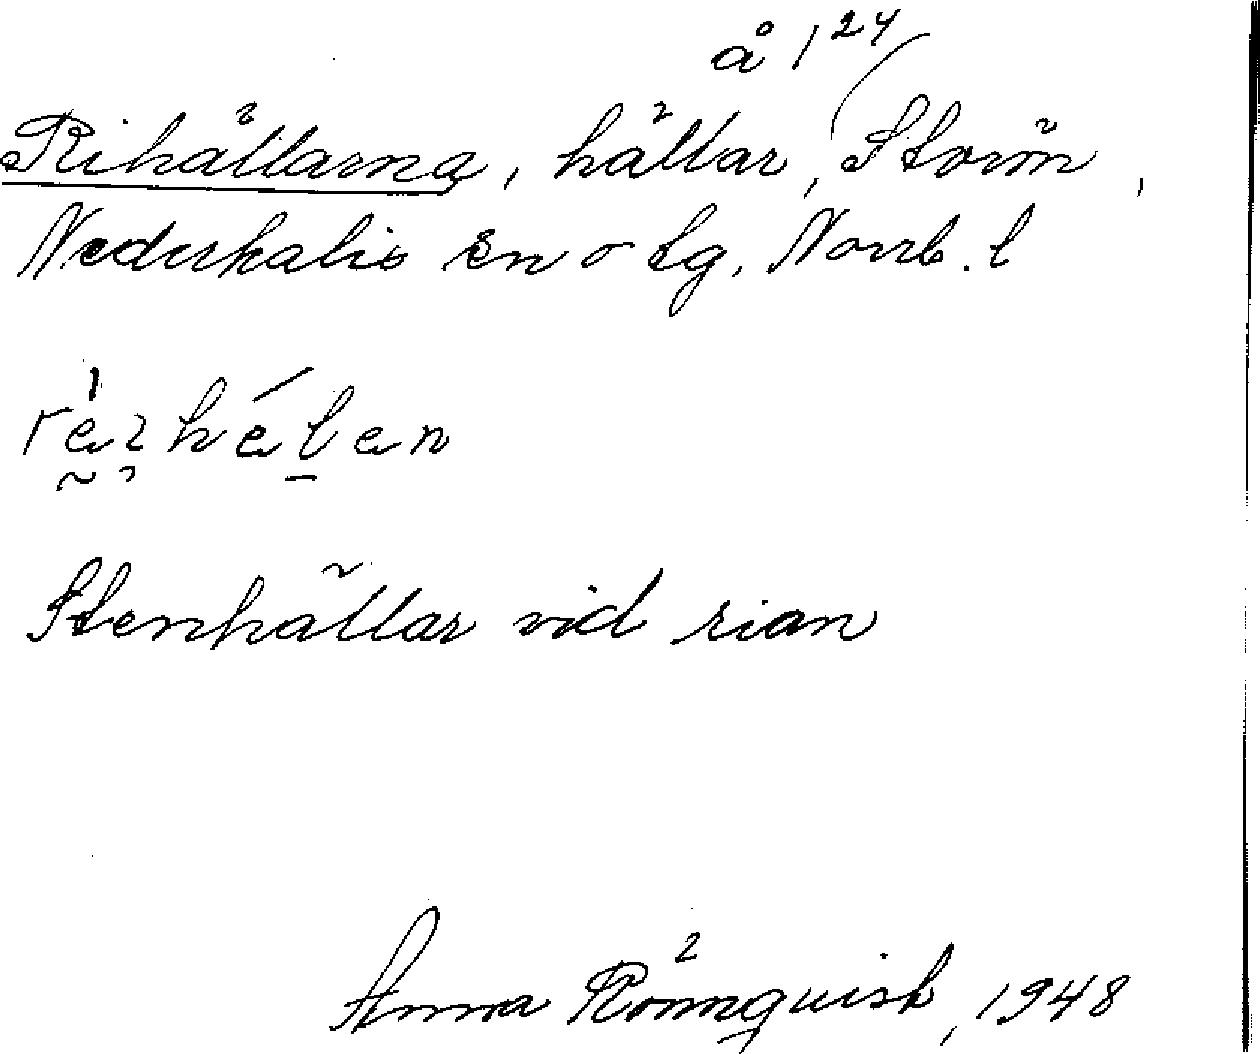 å 1 24
Rihällarna, hällar, Storön,
Nederkalix sn o tg. Norrb. l
Stenhällar vid rian
Anna Rönnquist, 1948